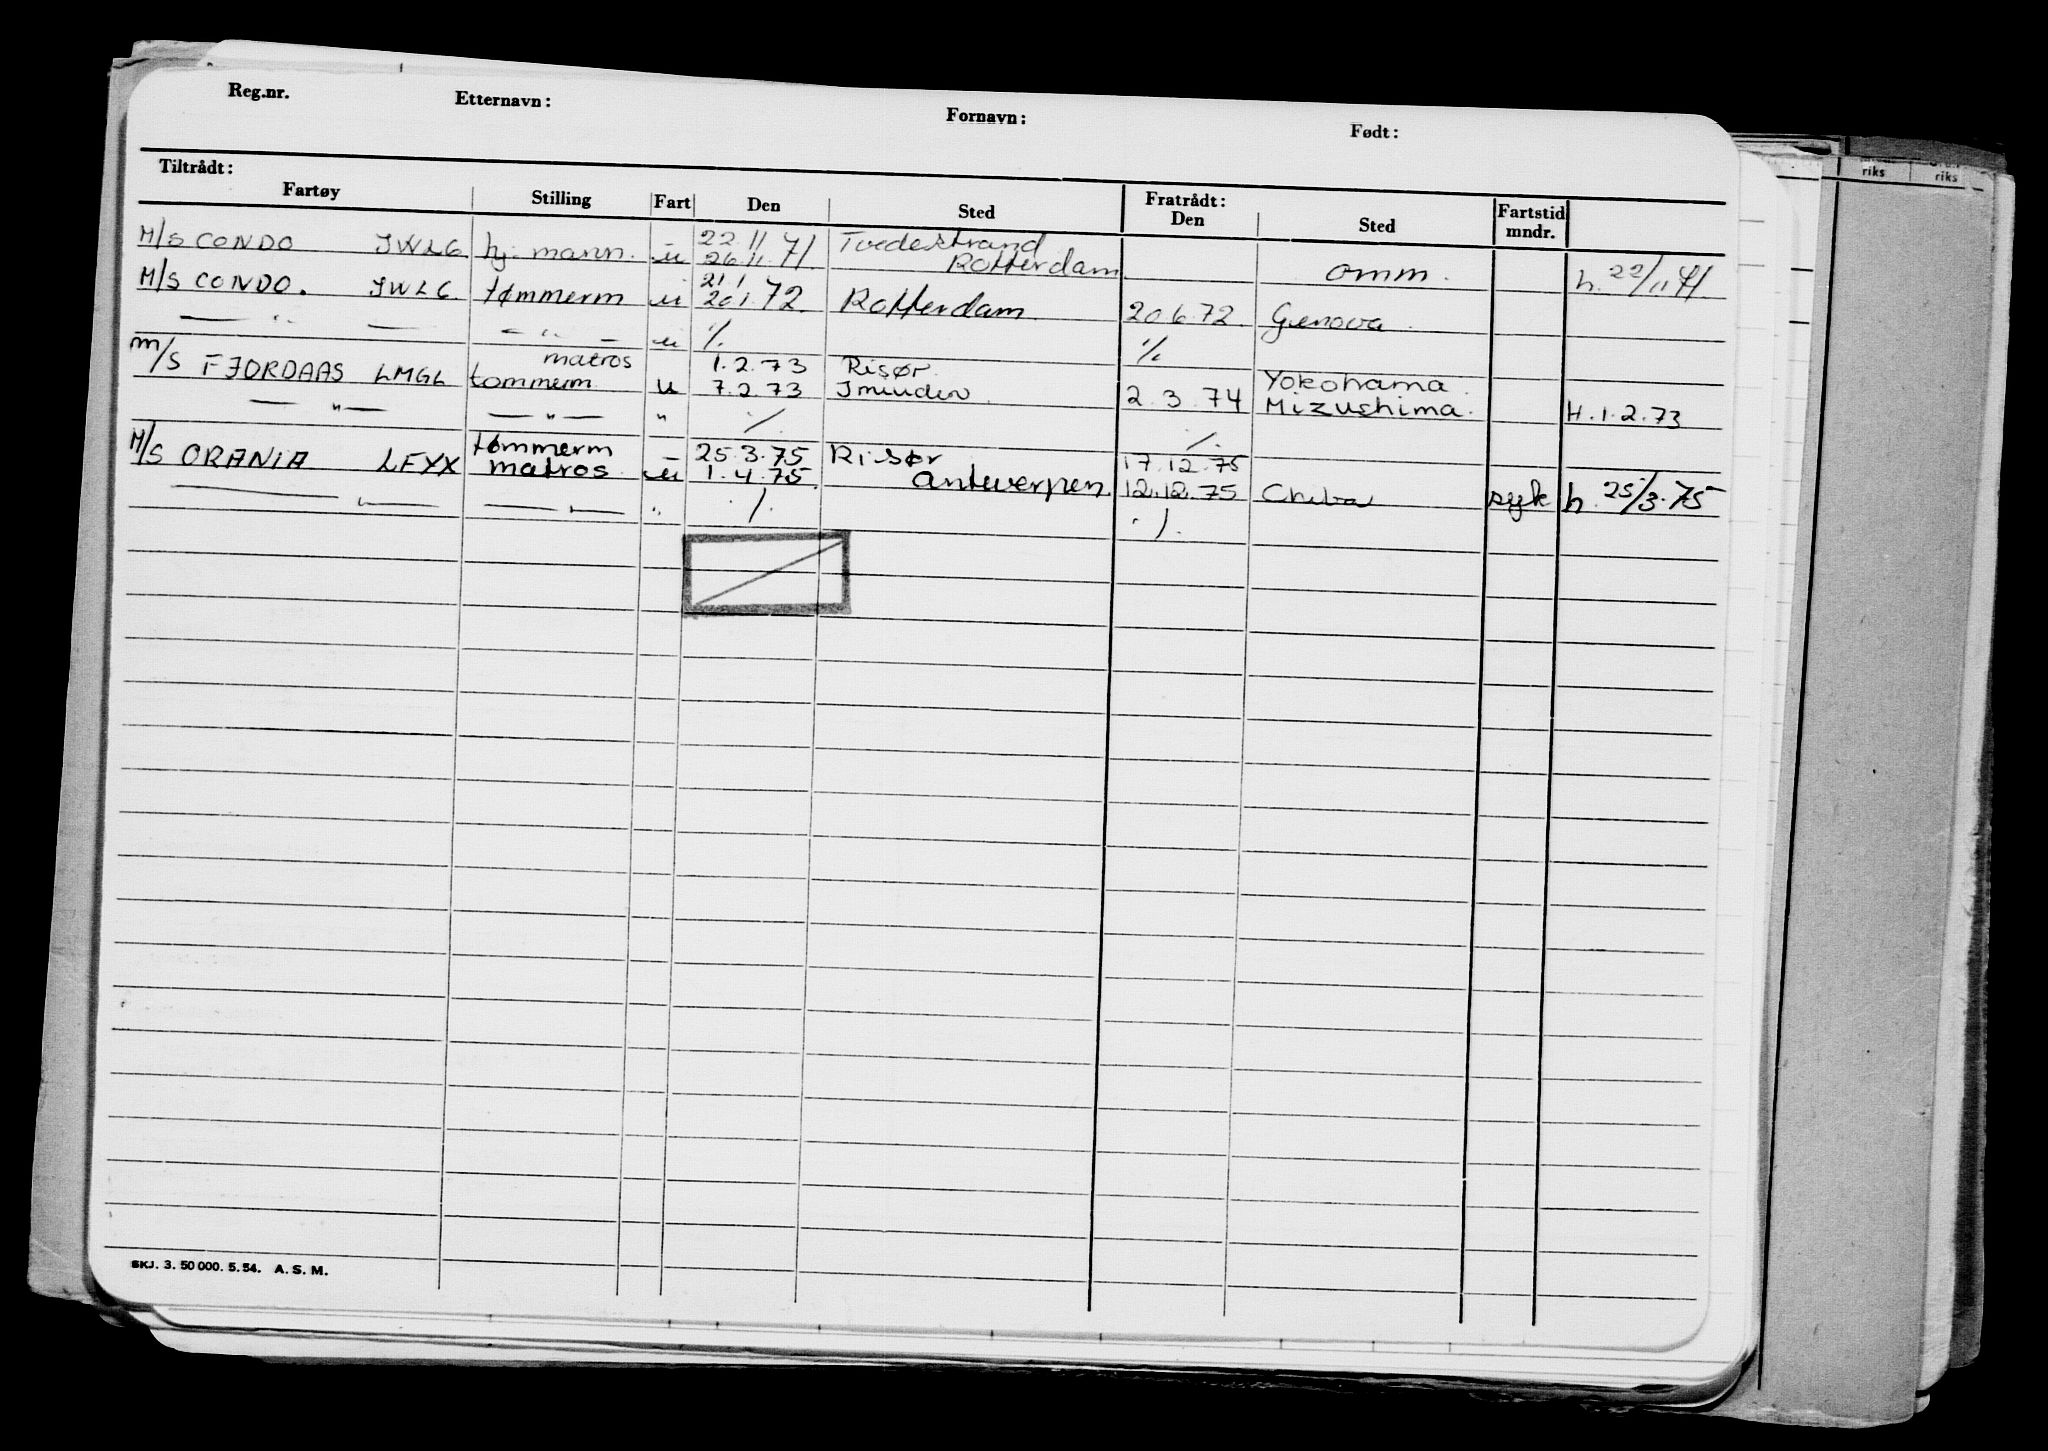 Reg.nr. Etternavn: Fornavn: Født:
Tiltrådt: Fratrådt:
Fartøy Stilling Fart Den Sted Den Sted Fartstid mndr.
22.11 Tvedestrand
M/S CONDO JWLG hj. mann. u 26.11.71. Rotterdam omm. h. 22/11 71.
21/1
M/S CONDO. JWLG tømmerm u 20.1.72. Rotterdam 20.6.72. Genova
— " — — " — u ./. ./.
matros 1.2.73 Risør. Yokohama
m/S FJORDAAS LMGL tømmerm u 7.2.73 Jmuiden. 2.3.74 Mizushima. H.1.2.73
— " — — " — " ./. ./.
tømmerm 25.3.75 Risør 17.12.75
M/S ORANIA LFYX matros u 1.4.75. Antwerpen 12.12.75 Chiba syk h. 25/3.75
— " — — " — " ./. ./.
SKJ. 3. 50 000. 5. 54. A. S. M.
riks riks